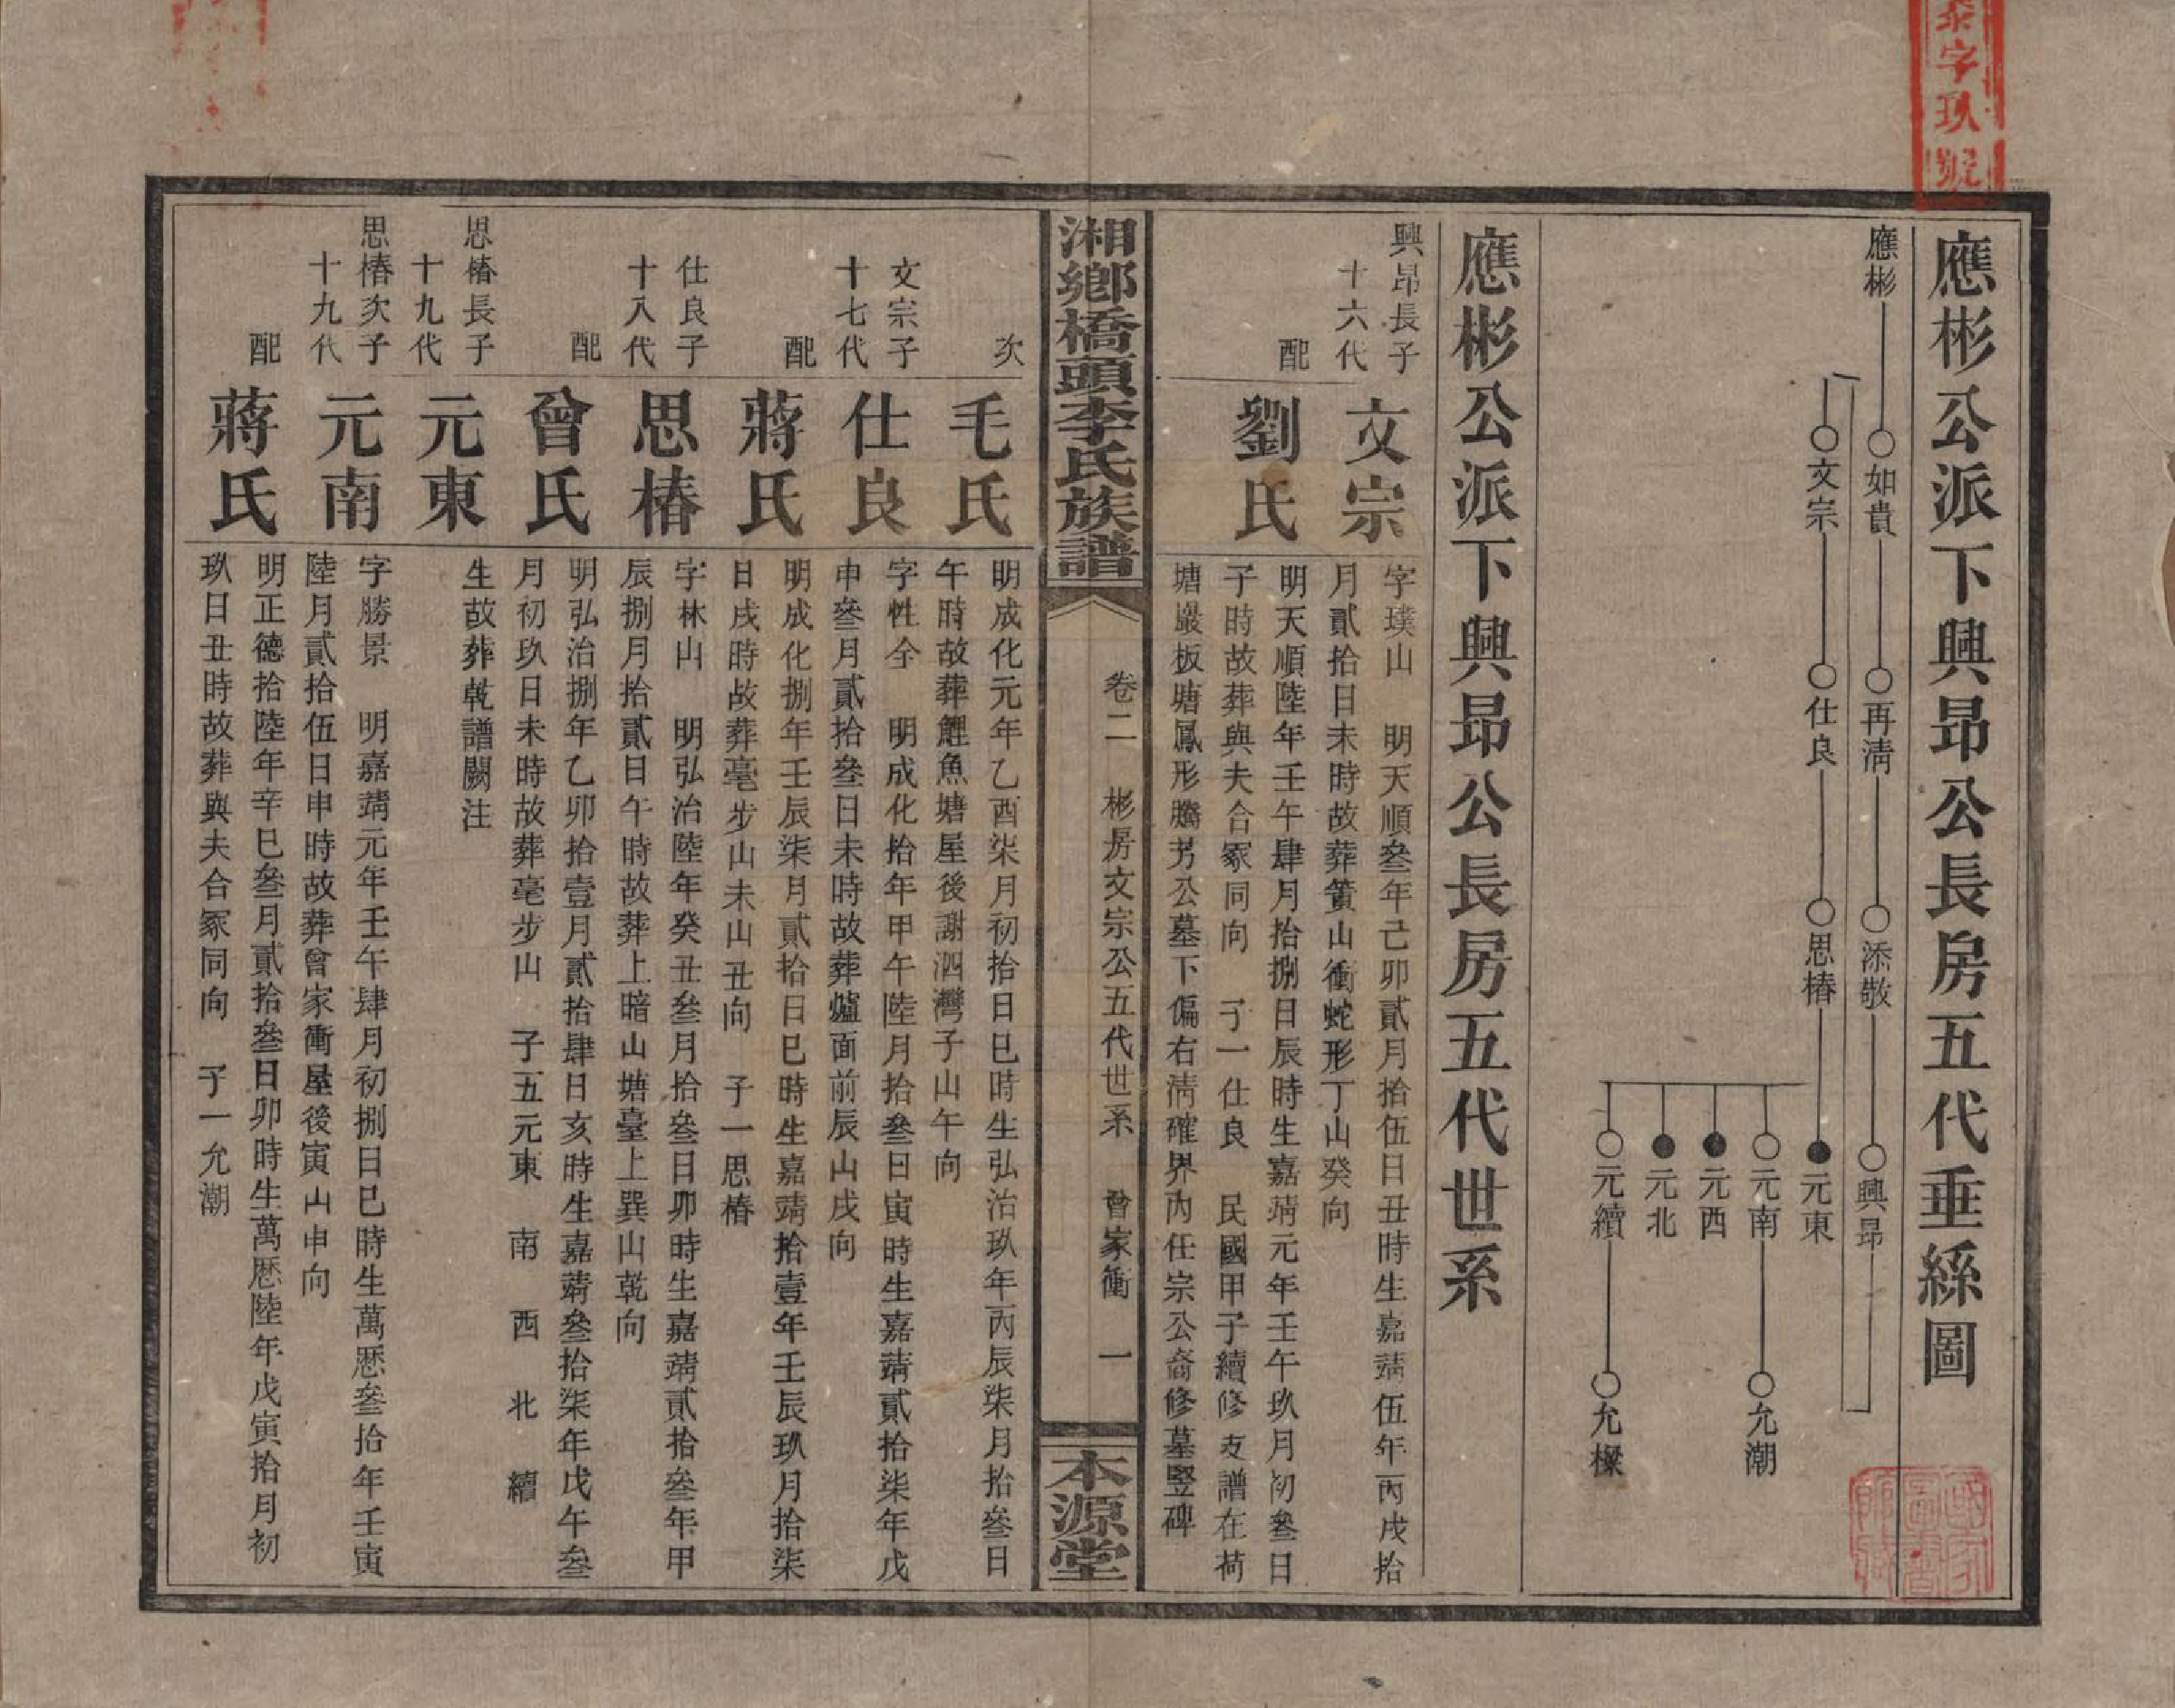 泰字玖號
應彬公派下興昂公長房五代垂絲圖
應彬
如貴
再淸
添敬
興昂
文宗
仕良
思椿
元東
元南
元西
元北
元續
允潮
允樑
應彬公派下興昂公長房五代世系
興昂長子
十六代
文宗
字璞山　明天順叄年己卯貳月拾伍日丑時生嘉靖伍年丙戌拾
月貳拾日未時故葬簣山衝蛇形丁山癸向
配
劉氏
明天順陸年壬午肆月拾捌日辰時生嘉靖元年壬午玖月初叄日
子時故葬與夫合冢同向　子一仕良　民國甲子續修支譜在荷
塘嚴板塘鳳形騰芳公墓下偏右淸確界內任宗公裔修墓竪碑
湘鄉橋頭李氏族譜
卷二　彬房文宗公五代世系　曾家衝　一
本源堂
次
毛氏
明成化元年乙酉柒月初拾日巳時生弘治玖年丙辰柒月拾叄日
午時故葬鯉魚塘屋後謝泗灣子山午向
文宗子
十七代
仕良
字性全　明成化拾年甲午陸月拾叄日寅時生嘉靖貳拾柒年戊
申叄月貳拾叄日未時故葬爐面前辰山戌向
配
蔣氏
明成化捌年壬辰柒月貳拾日巳時生嘉靖拾壹年壬辰玖月拾柒
日戌時故葬毫步山未山丑向　子一思椿
仕良子
十八代
思椿
字林山　明弘治陸年癸丑叄月拾叄日卯時生嘉靖貳拾叄年甲
辰捌月拾貳日午時故葬上暗山塘臺上巽山乾向
配
曾氏
明弘治捌年乙卯拾壹月貳拾肆日亥時生嘉靖叄拾柒年戊午叄
月初玖日未時故葬毫步山　子五元東　南　西　北　續
思椿長子
十九代
元東
生故葬乾譜闕注
思椿次子
十九代
元南
字勝景　明嘉靖元年壬午肆月初捌日巳時生萬厯叄拾年壬寅
陸月貳拾伍日申時故葬曾家衝屋後寅山申向
配
蔣氏
明正德拾陸年辛巳叄月貳拾叄日卯時生萬厯陸年戊寅拾月初
玖日丑時故葬與夫合冢同向　子一允潮